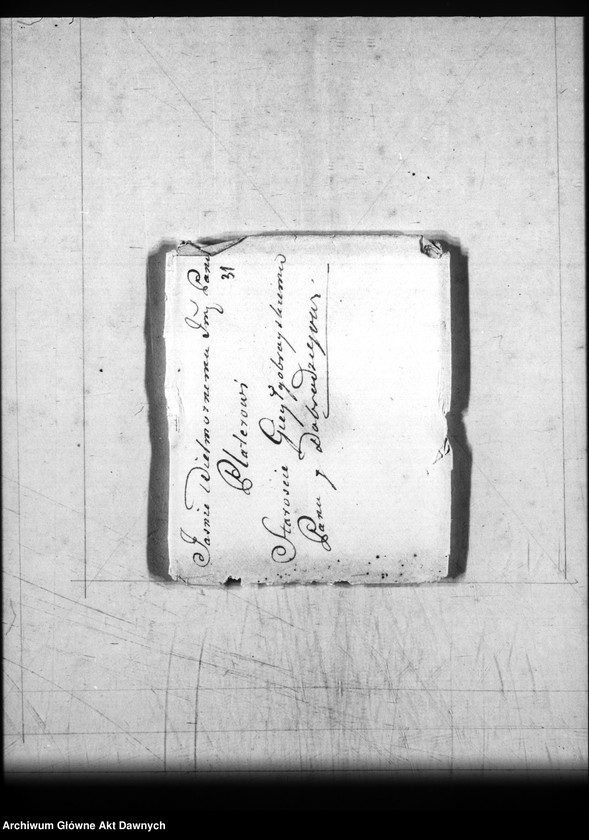 Jaśnie Wielmożnemu Jmć Panu
31
Platerowi
Staroscie
Panu y Dobrodziejowi.
Archiwum Główne Akt Dawnych